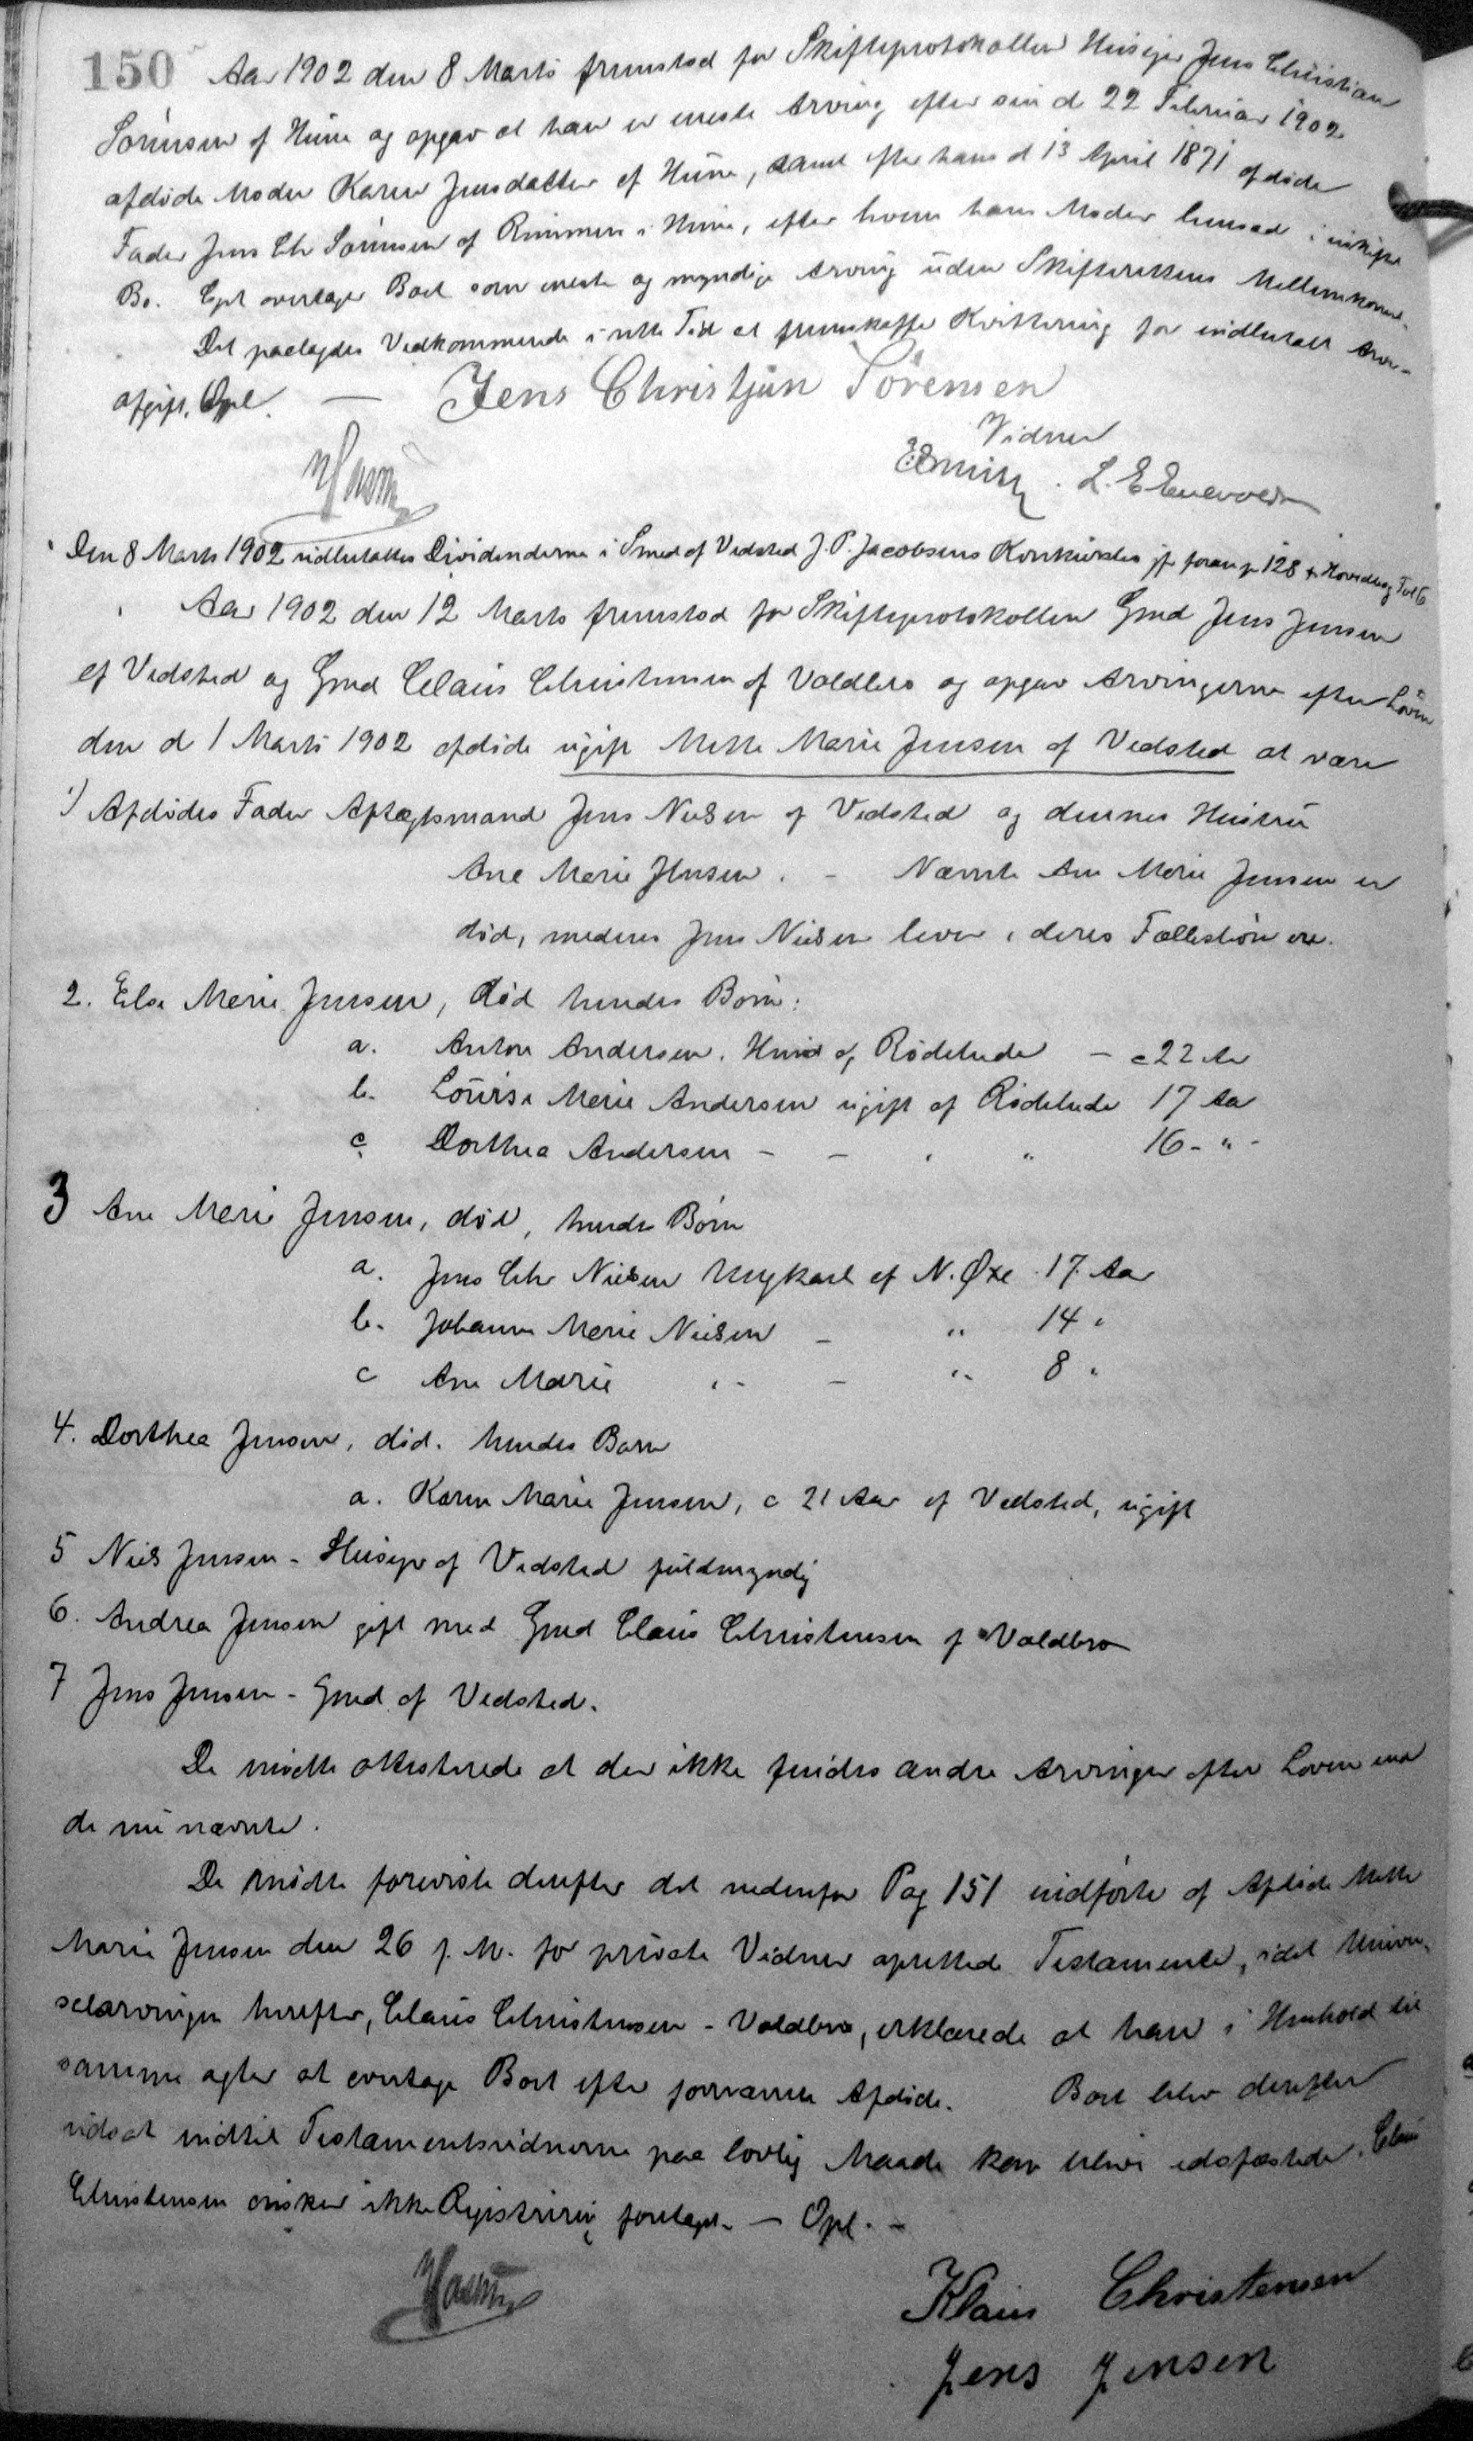 150 Aar 1902 den 8 Marts fremstod for Skifteprotokollen Husejer Jens Christian
Sörensen af Hune og opgav at han er eneste Arving efter sin d 22 Februar 1902
afdöde Moder Karen Jensdatter af Hune, samt efter hans d 13 April 1871 afdöde
Fader Jens Chr Sörensen af Rimmen i Hune, efter hvem hans Moder hensad i uskiftet
Bo. Cpt overtager Boet som eneste og myndige Arving uden Skifterettens Mellemkomst.
Det paalagdes Vedkommende i rette Tid at fremskaffe Kvittering for indbetalt Arve-
afgift. Opl. — Jens Christjan Sörensen
Vidner
L. E Enevolds
Den 8 Marts 1902 udbetaltes Dividenderne i Smed af Vedsted J. P. Jacobsens Konkursbo jfr foran p 128 & Hovedbog Fol 6
Aar 1902 den 12 Marts fremstod for Skifteprotokollen Gmd Jens Jensen
af Vedsted og Gmd Claus Christensen af Voldbro og opgav Arvingerne efter Loven
den d 1 Marts 1902 afdöde ugift Mette Marie Jensen af Vedsted at være
1) Afdödes Fader Aftægtsmand Jens Nielsen af Vedsted og dennes Hustru
Ane Marie Jensen. - Nævnte Ane Marie Jensen er
död, medens Jens Nielsen lever, deres Fællesbörn ere.
2. Else Marie Jensen, död hendes Börn:
a. Anton Andersen. Hmd af Rödelede - c 22 Aar
b. Louise Marie Andersen ugift af Rödelede 17 Aar
c. Dorthea Andersen - - " " 16 - " -
3 Ane Marie Jensen, död, hendes Börn
a. Jens Chr Nielsen Ungkarl af N. Øxe 17 Aar
b. Johanne Marie Nielsen - " 14 "
c Ane Marie " - - " 8 "
4. Dorthea Jensen, död. hendes Barn
a. Karen Marie Jensen, c 21 Aar af Vedsted, ugift
5 Niels Jensen - Husejer af Vedsted fuldmyndig
6. Andrea Jensen gift med Gmd Claus Christensen af Voldbro
7 Jens Jensen - Gmd af Vedsted.
De mødte attesterede at der ikke findes andre Arvinger efter Loven end
de nu nævnte.
De mødte foreviste derefter det nedenfor Pag 151 indførte af Afdøde Mette
Marie Jensen den 26 f. M. for private Vidner oprettede Testamente, idet Univer-
salarvingen herefter, Claus Christensen - Voldbro, erklærede at han i Henhold til
samme agter at overtage Boet efter fornævnte Afdøde. Boet blev derefter
udsat indtil Testamentsvidnerne paa lovlig Maade kan blive edsfæstede. Claus
Christensen ønsker ikke Registrering foretaget. — Opl. -
Klaus Christensen
Jens Jensen